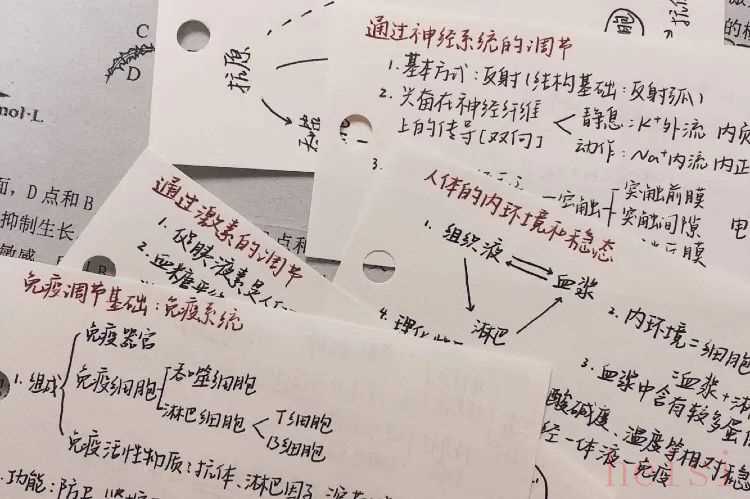 C
D
mol·L
面,D点和B
抑制生长
敏感
抗原
通过神经系统的调节
1.基本方式:反射(结构基础:反射弧)
2.兴奋在神经纤维上的传导[双向]
静息:K⁺外流 内
动作:Na⁺内流 内正
3.
突触
突触前膜
突触间隙
膜
电
通过激素的调节
1.促胰液素是人
2.血糖平
点和
人体的内环境和稳态
1.组织液
血浆
淋巴
2.内环境=细胞
=血浆+淋
3.血浆中含有较多蛋
4.理化
酸碱度、温度等相对稳
经一体液一免疫
免疫调节基础:免疫系统
1.组成
免疫器官
免疫细胞
吞噬细胞
淋巴细胞
T细胞
B细胞
免疫活性物质:抗体、淋巴因子、溶菌
功能:防卫、监控